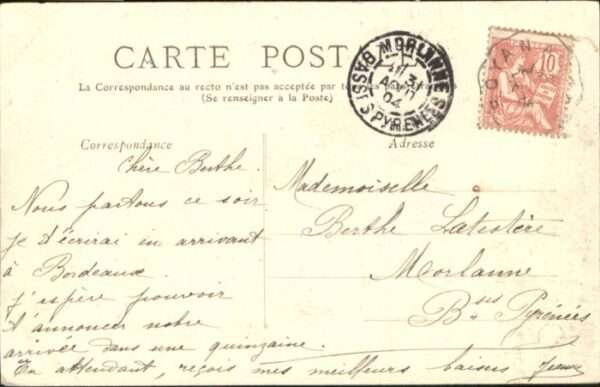 CARTE POSTALE
La Correspondance au recto n'est pas acceptée par
(Se renseigner à la Poste)
MORLANNE
31
AOUT
04
BASSES PYRENEES
10
Correspondance
Adresse
Chère Berthe.
Nous partons ce soir
je t'écrirai en arrivant
à Bordeaux.
j'espère pouvoir
t'annoncer notre
arrivée dans une quinzaine.
En attendant, reçois mes meilleurs baisers
Mademoiselle
Berthe Latestère
Morlanne
Bses Pyrénées